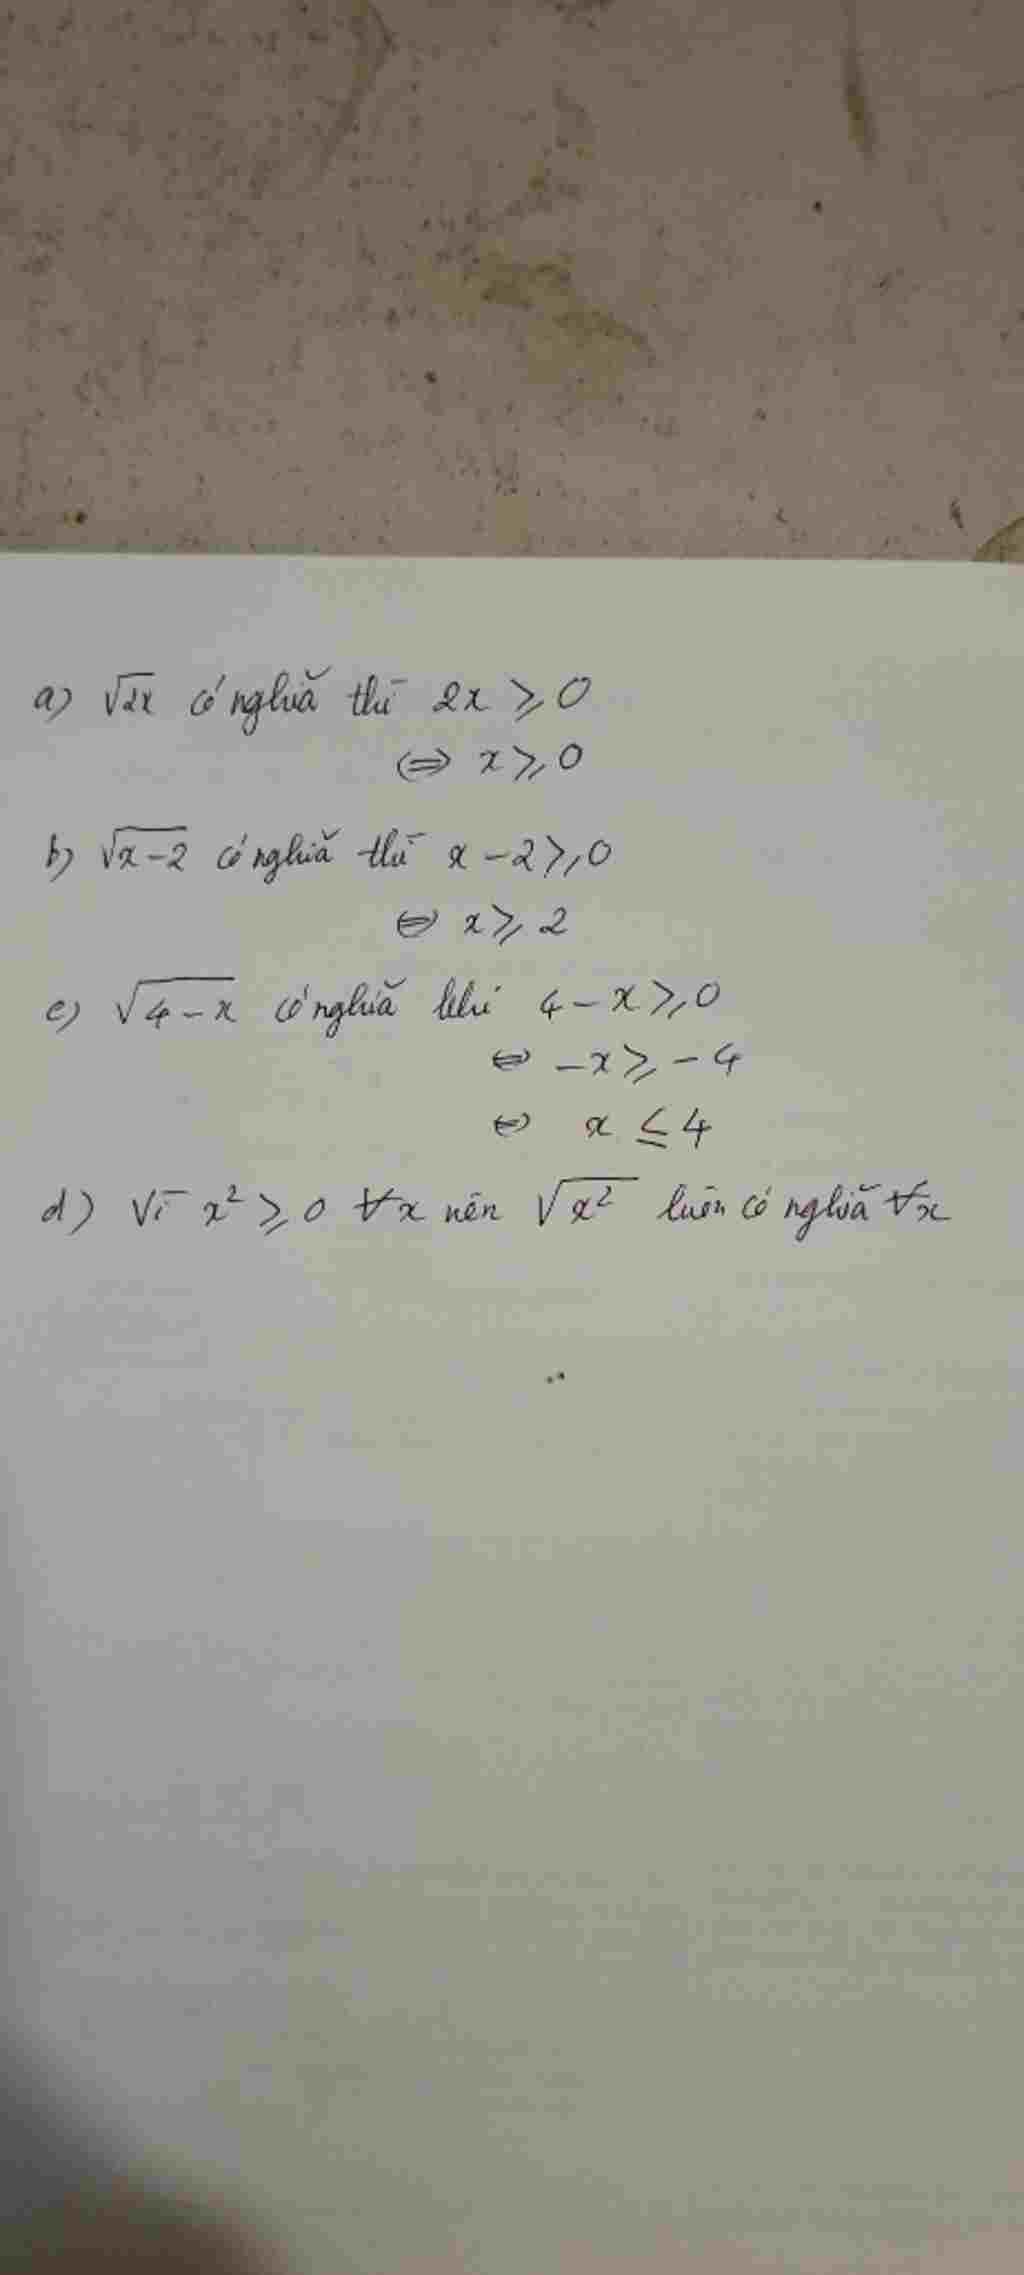 a) √2x có nghiã thì 2x ⩾ 0
⇔ x ⩾ 0
b) √x-2 có nghiã thì x - 2 ⩾ 0
⇔ x ⩾ 2
c) √4-x có nghiã khi 4 - x ⩾ 0
⇔ -x ⩾ -4
⇔ x ≤ 4
d) Vì x² ⩾ 0 ∀x nên √x² luôn có nghiã ∀x